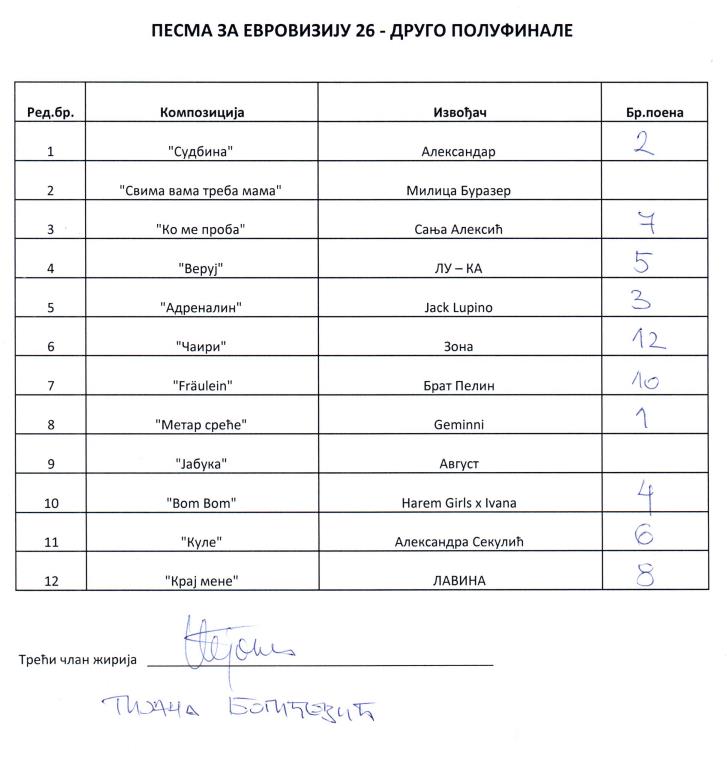 ПЕСМА ЗА ЕВРОВИЗИЈУ 26 - ДРУГО ПОЛУФИНАЛЕ
Ред.бр. Композиција Извођач Бр.поена
1 "Судбина" Александар 2
2 "Свима вама треба мама" Милица Буразер
3 "Ко ме проба" Сања Алексић 7
4 "Веруј" ЛУ – КА 5
5 "Адреналин" Jack Lupino 3
6 "Чаири" Зона 12
7 "Fräulein" Брат Пелин 10
8 "Метар среће" Geminni 1
9 "Јабука" Август
10 "Bom Bom" Harem Girls x Ivana 4
11 "Куле" Александра Секулић 6
12 "Крај мене" ЛАВИНА 8
Трећи члан жирија
ТИЈАНА БОГИЋЕВИЋ